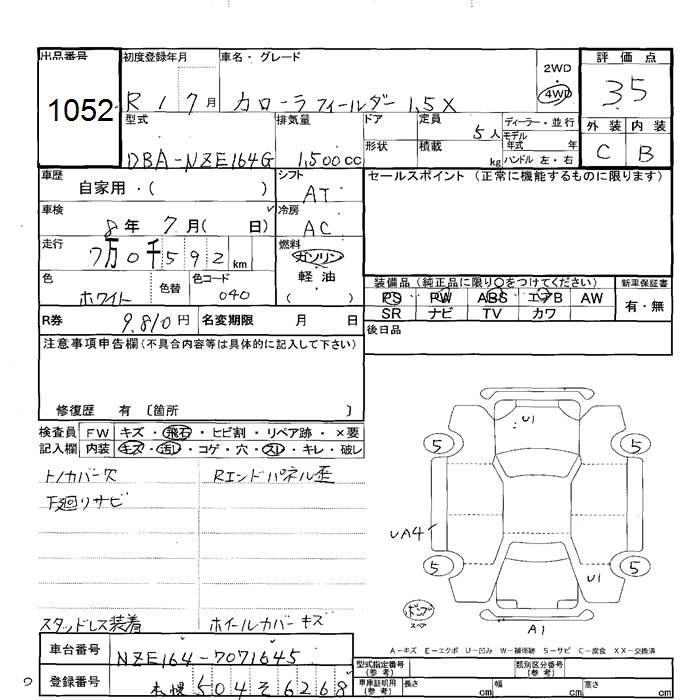 出品番号 初度登録年月 車名・グレード 2WD 評価点
1052 R1 7月 カローラフィールダー 1.5X 4WD 3.5
型式 排気量 ドア 定員 5人 ディーラー・並行 外装 内装
DBA-NZE164G 1,500cc 形状 積載 kg モデル年式 年 ハンドル 左・右 C B
車歴 自家用・( ) シフト AT セールスポイント (正常に機能するものに限ります)
車検 8年 7月( 日) 冷房 AC
走行 7万0千592km 燃料 ガソリン
軽・油
( )
色 ホワイト 色替 色コード 040
装備品 (純正品に限り○をつけてください) 新車保証書
PS PW ABS エアB AW 有・無
SR ナビ TV カワ
R券 9,810円 名変期限 月 日 後日品
注意事項申告欄(不具合内容等は具体的に記入して下さい)
修復歴 有 〔箇所 〕
検査員 FW キズ・飛石・ヒビ割・リペア跡・×要
記入欄 内装 キズ・汚レ・コゲ・穴・スレ・キレ・破レ
トノカバー欠 Rエンドパネル歪
下廻りサビ
スタッドレス装着 ホイールカバーキズ
U1
5 5
UA4
5 5
U1
ポンプ
スペア
A1
A-キズ E-エクボ U-凹み W-補修跡 S-サビ C-腐食 XX-交換済
車台番号 NZE164-7071645
登録番号 札幌 504 そ 6268
型式指定番号(参考) 類別区分番号(参考)
車庫証明用(参考) 長さ cm 幅 cm 高さ cm